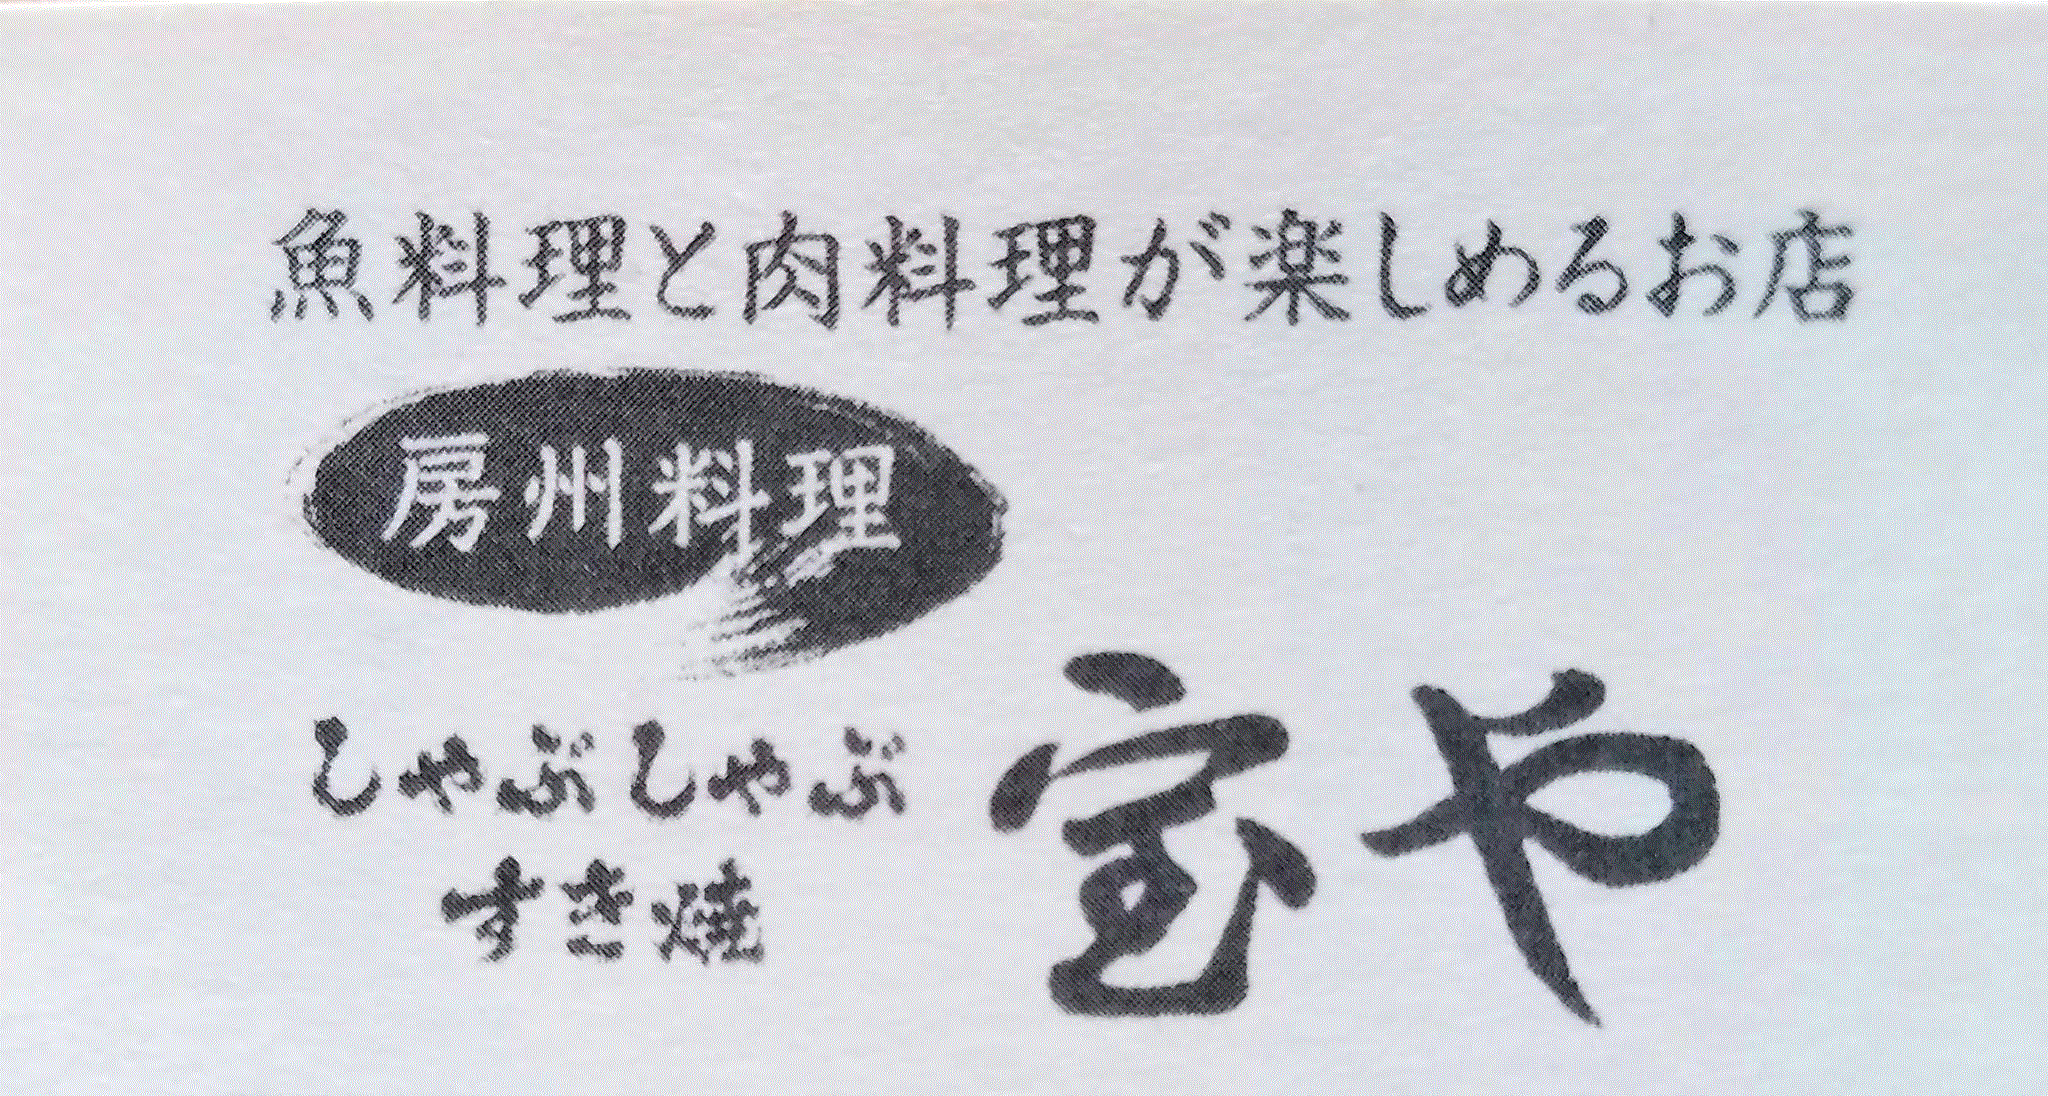 魚料理と肉料理が楽しめるお店
房州料理
しゃぶしゃぶ
すき焼
宝や